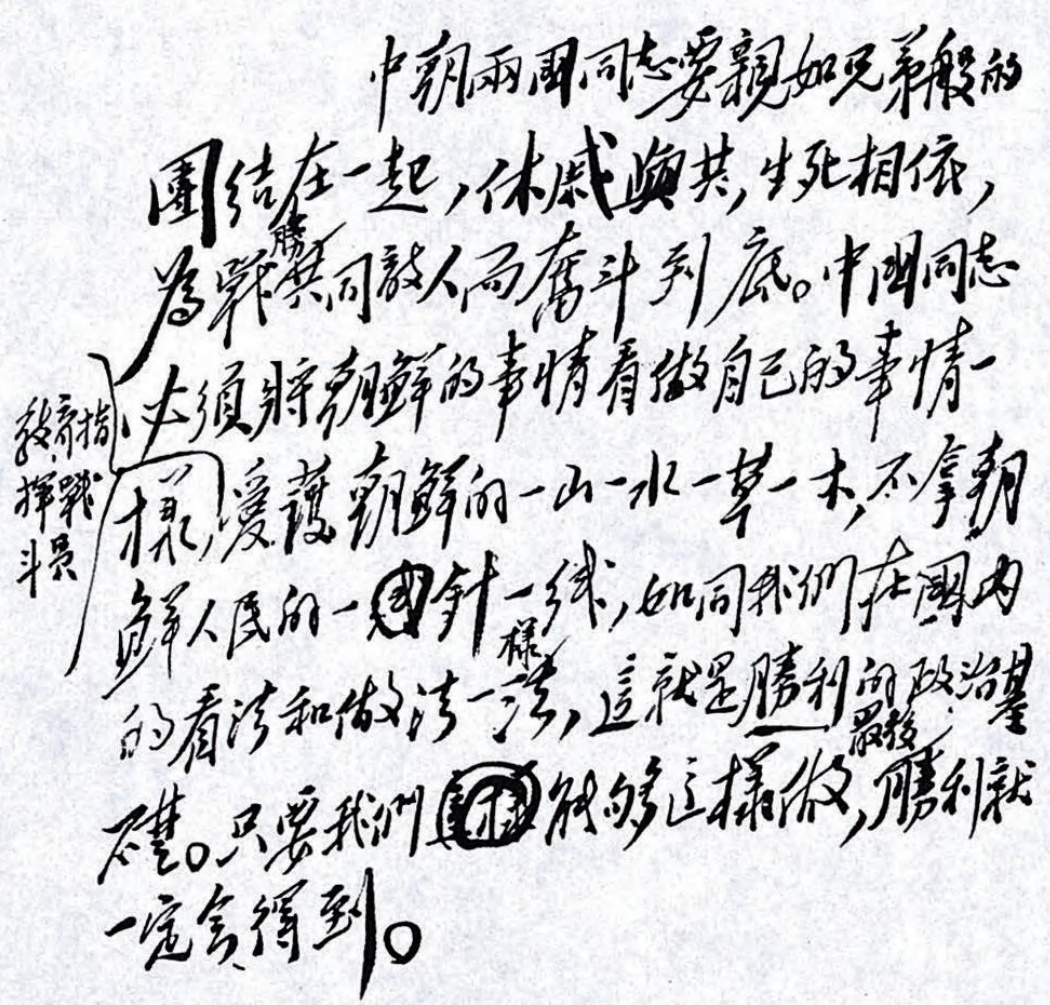 中朝兩國同志要親如兄弟般的
團结在一起,休戚與共,生死相依,
為戰勝共同敵人而奮斗到底。中國同志
必須將朝鮮的事情看做自己的事情一
樣,教育指
揮戰
斗員
愛護朝鮮的一山一水一草一木,不拿朝
鮮人民的一針一线,如同我們在國內
的看法和做法一樣,這就是勝利的政治基
礎。只要我們能够這樣做,最後勝利就
一定會得到。